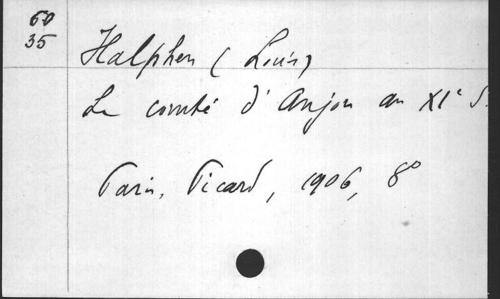 60
35
Halphen (Louis)
Le comté d'Anjou au XIe s.
Paris, Picard, 1906, 8°